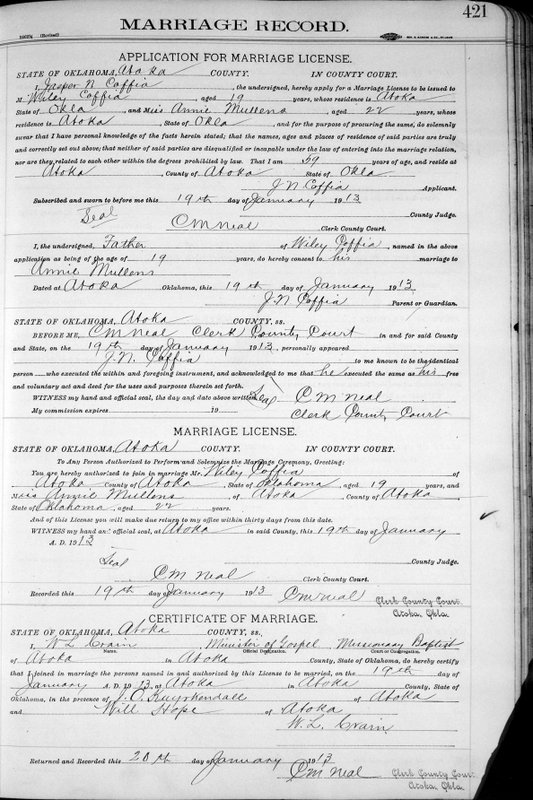 421
MARRIAGE RECORD.
APPLICATION FOR MARRIAGE LICENSE.
STATE OF OKLAHOMA, Atoka COUNTY. IN COUNTY COURT.
I, Jasper N Coffia, the undersigned, hereby apply for a Marriage License to be issued to
M Wiley Coffia, aged 19 years, whose residence is Atoka
State of Okla, and Miss Annie Mullens, aged 22 years, whose
residence is Atoka, State of Okla and for the purpose of procuring the same, do solemnly
swear that I have personal knowledge of the facts herein stated; that the names, ages and places of residence of said parties are truly
and correctly set out above; that neither of said parties is disqualified or incapable under the law of entering into the marriage relation,
nor are they related to each other within the degrees prohibited by law. That I am 59 years of age, and reside at
Atoka, County of Atoka State of Okla
J N Coffia Applicant.
Subscribed and sworn to before me this 19th day of January 1913
Seal County Judge.
C M Neal Clerk County Court.
I, the undersigned, Father of Wiley Coffia, named in the above
application as being of the age of 19 years, do hereby consent to his marriage to
Annie Mullens
Dated at Atoka Oklahoma, this 19th day of January 1913
J. N Coffia Parent or Guardian.
STATE OF OKLAHOMA, Atoka COUNTY, ss.
BEFORE ME, C M Neal Clerk County Court in and for said County
and State, on the 19th day of January 1913, personally appeared
J. N. Coffia to me known to be the identical
person who executed the within and foregoing instrument, and acknowledged to me that he executed the same as his free
and voluntary act and deed for the uses and purposes therein set forth.
WITNESS my hand and official seal, the day and date above written. Seal C M Neal
My commission expires 19 Clerk County Court
MARRIAGE LICENSE.
STATE OF OKLAHOMA, Atoka COUNTY. IN COUNTY COURT.
To Any Person Authorized to Perform and Solemnize the Marriage Ceremony, Greeting:
You are hereby authorized to join in marriage Mr. Wiley Coffia of
Atoka County of Atoka, State of Oklahoma, aged 19 years, and
Miss Annie Mullens, of Atoka, County of Atoka
State of Oklahoma, aged 22 years.
And of this License you will make due return to my office within thirty days from this date.
WITNESS my hand and official seal, at Atoka in said County, this 19th day of January
A. D. 1913
Seal County Judge.
C M Neal Clerk County Court.
Recorded this 19th day of January 1913 C M Neal Clerk County Court
Atoka, Okla.
CERTIFICATE OF MARRIAGE.
STATE OF OKLAHOMA, Atoka COUNTY, ss.
I, W L Crain Minister of Gospel, Missionary Baptist
Name. Official Designation. Church or Congregation.
of Atoka in Atoka County, State of Oklahoma, do hereby certify
that I joined in marriage the persons named in and authorized by this License to be married, on the 19th day of
January A. D. 1913 at Atoka in Atoka County, State of
Oklahoma, in the presence of J. C. Kuyrkendall of Atoka
and Will Hope of Atoka
W. L. Crain
Returned and Recorded this 20th day of January 1913
C M Neal Clerk County Court
Atoka, Okla.